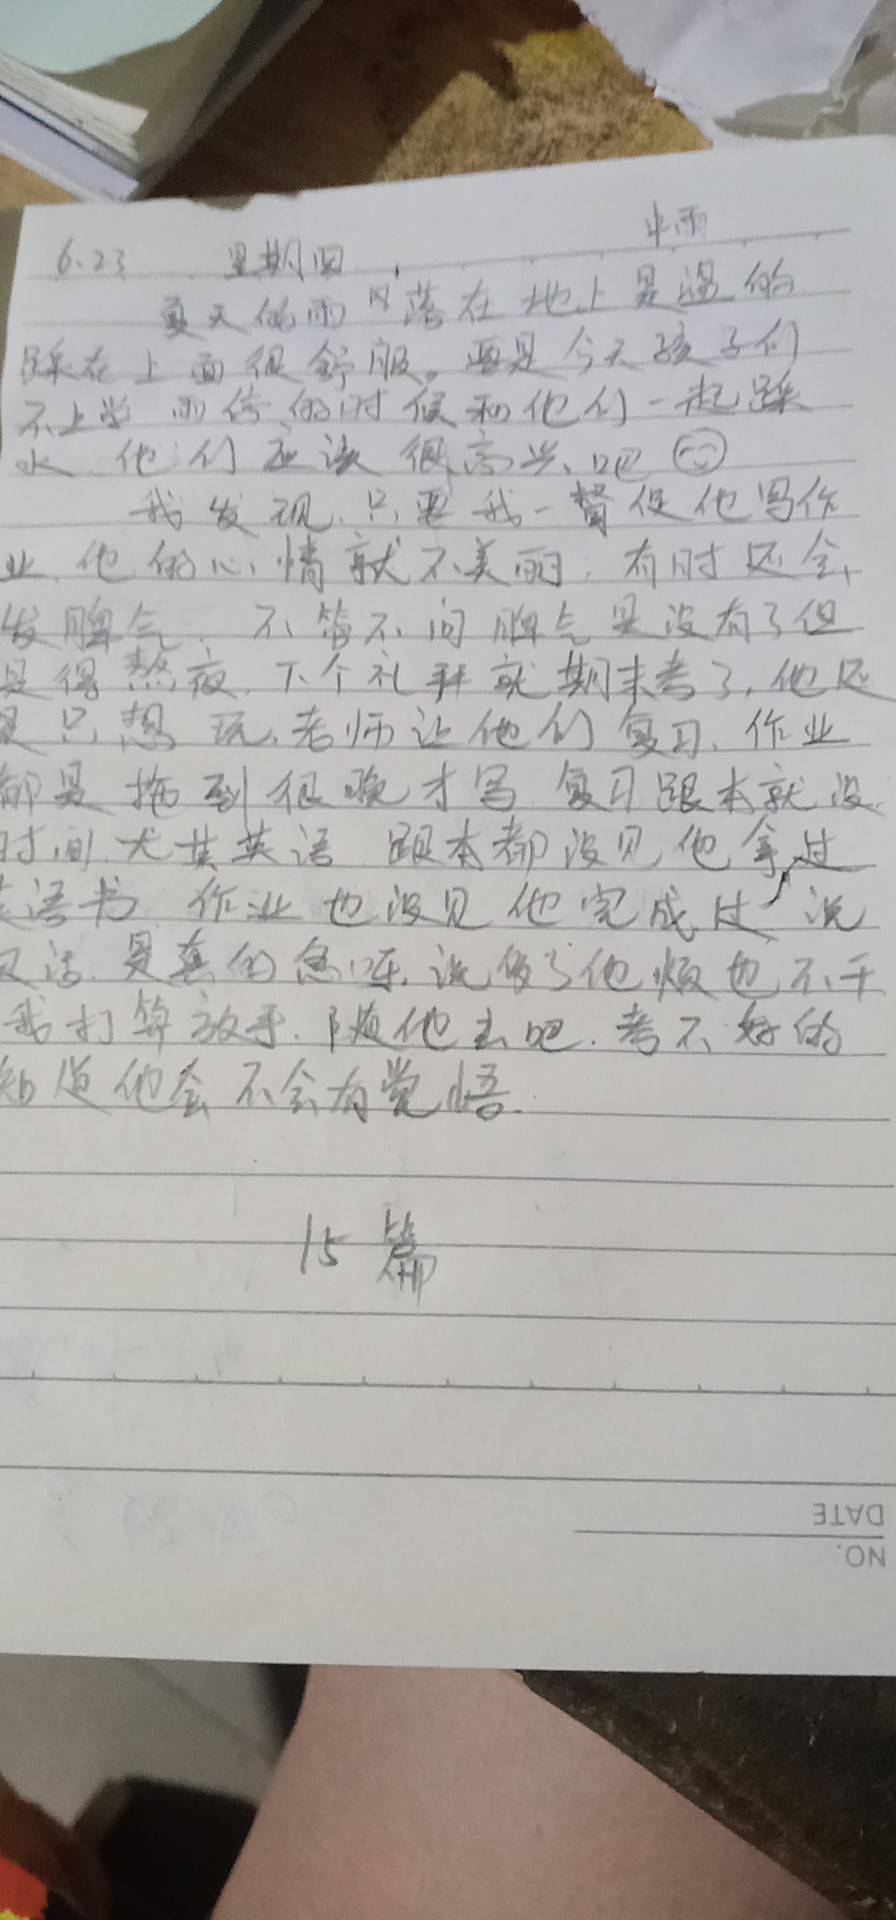 6.23 星期四 中雨
夏天的雨 落在地上是温的
踩在上面很舒服。要是今天孩子们
不上学 雨停的时候和他们一起踩
水 他们应该很高兴吧
我发现.只要我一督促他写作
业.他的心情就不美丽.有时还会
发脾气. 不管不问脾气是没有了但
是得熬夜.下个礼拜就期末考了,他还
是只想玩.老师让他们复习.作业
都是拖到很晚才写 复习跟本就没
时间.尤其英语 跟本都没见他拿过
语书 作业也没见他完成过 说
又 是真的急 .说多了他烦也不干
我打算放手.随他去吧.考不好的
知道他会不会有觉悟.
15篇
DATE
NO.